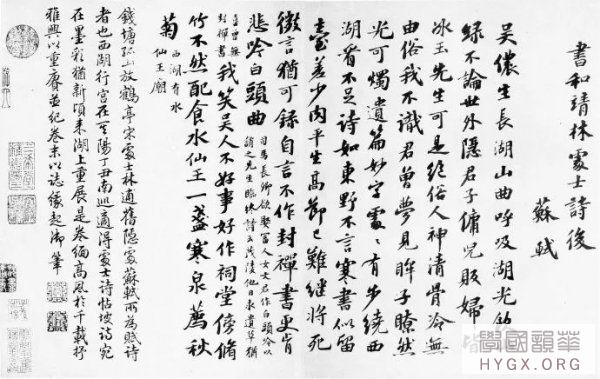 書和靖林處士詩後
蘇軾
吳儂生長湖山曲呼吸湖光飲
綠不論世外隱君子傭兒販婦
冰玉先生可是絕俗人神清骨冷無
由俗我不識君曾夢見眸子瞭然
光可燭遺篇妙字處〻有步繞西
湖看不足詩如東野不言寒書似留
臺差少肉平生高節已難繼將死
微言猶可錄自言不作封禪書更肯
悲吟白頭曲
司馬長卿欲娶富人女文君作白頭吟以
誚之先生臨終詩云茂陵他日求遺草猶
喜曾無
封禪書
我笑吳人不好事好作祠堂傍脩
竹不然配食水仙王一盞寒泉薦秋
菊
西湖有水
仙王廟
錢塘孤山放鶴亭宋處士林逋舊隱處蘇軾所為賦詩
者也西湖行宮在其陽丁丑南巡適得處士詩帖坡詩宛
在墨彩猶新頃來湖上重展是卷緬高風於千載抒
雅興以重賡並紀卷末以誌緣起御筆
HYGX.ORG